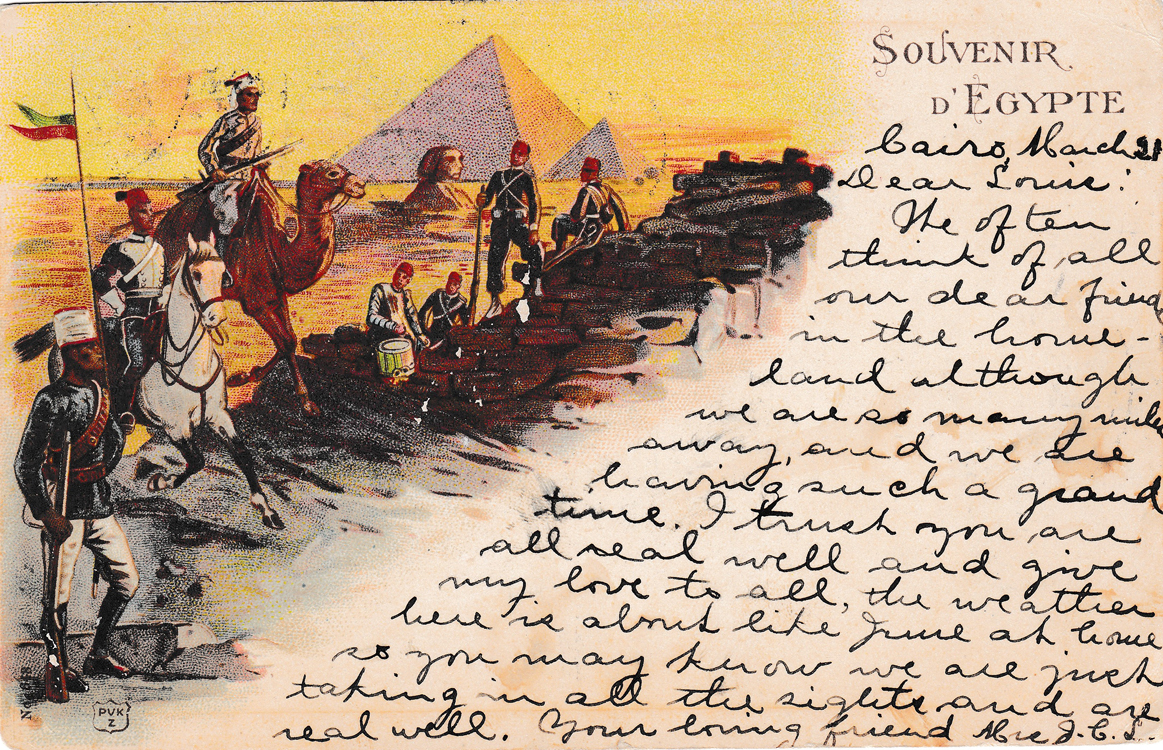 SOUVENIR
D'EGYPTE
Cairo, March 21
Dear Louis:
We often
think of all
our dear friend
in the home-
land although
we are so many miles
away, and we are
having such a grand
time. I trust you are
all real well and give
my love to all, the weather
here is about like June at home
so you may know we are just
taking in all the sights and are
real well. Your loving friend Mrs J. C. S.
PVK
Z